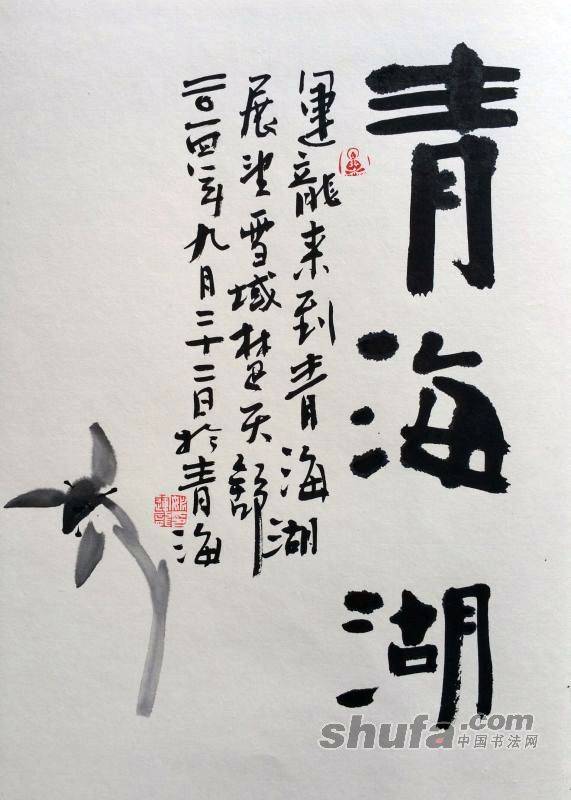 青海湖
運龍来到青海湖
展望雪域楚天舒
二〇一四年九月二十二日於青海
shufa.com
中国书法网